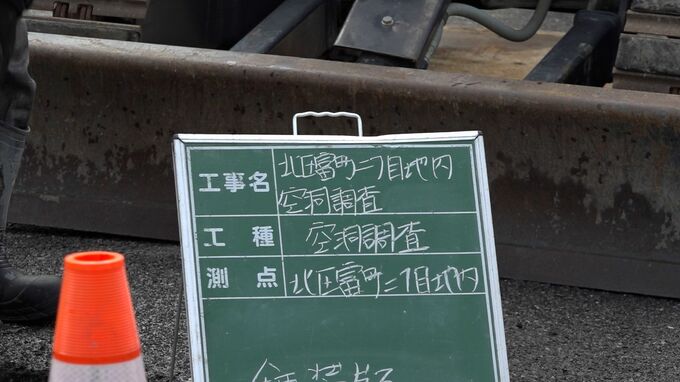 工事名 北広富町二丁目地内
空洞調査
工種 空洞調査
測点 北広富町二丁目地内